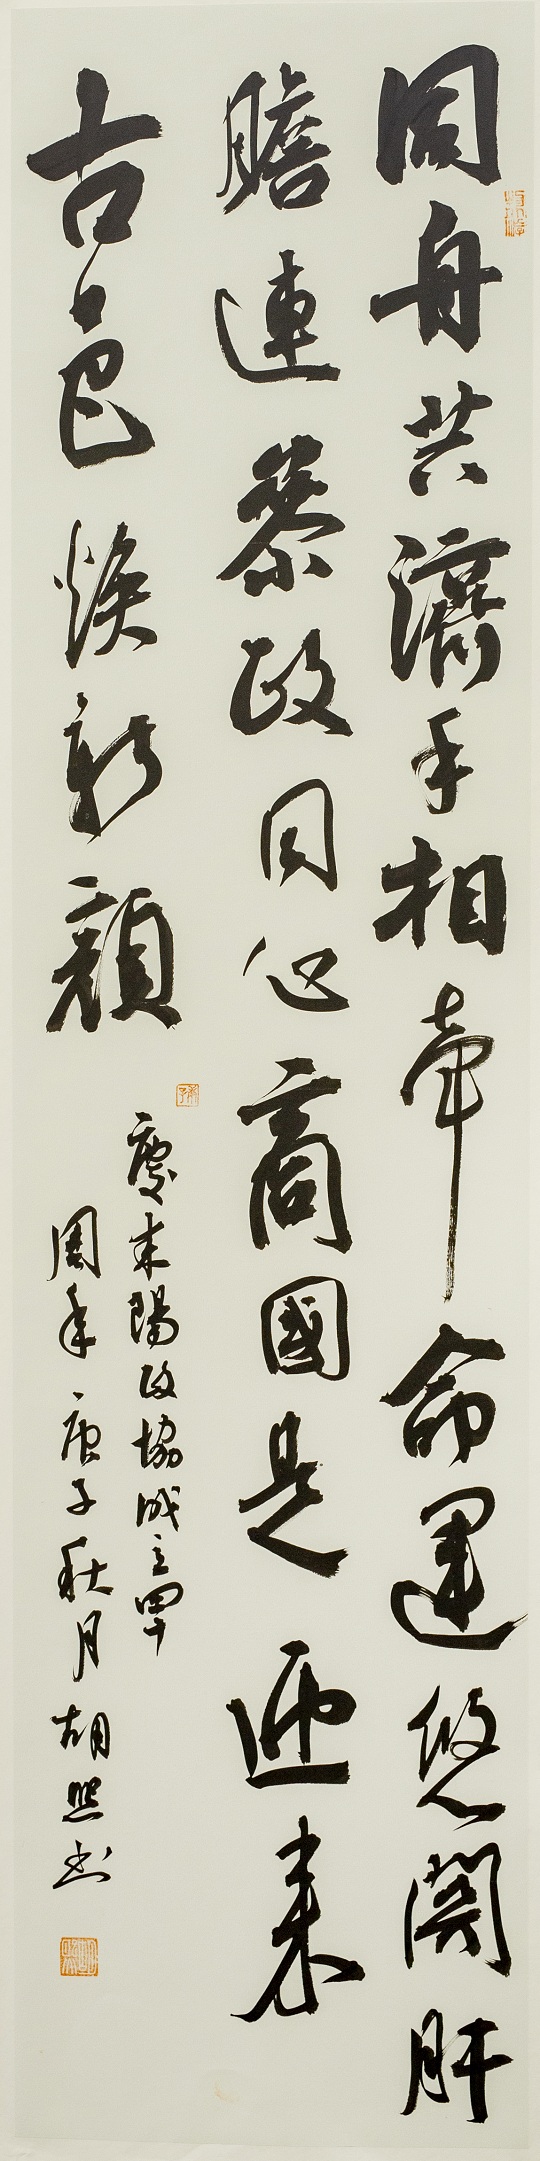 同舟共濟手相牽命運悠關肝
膽連參政同心商國是迎來
古邑煥新顏
慶耒陽政協成立四十
周年庚子秋月胡熙书